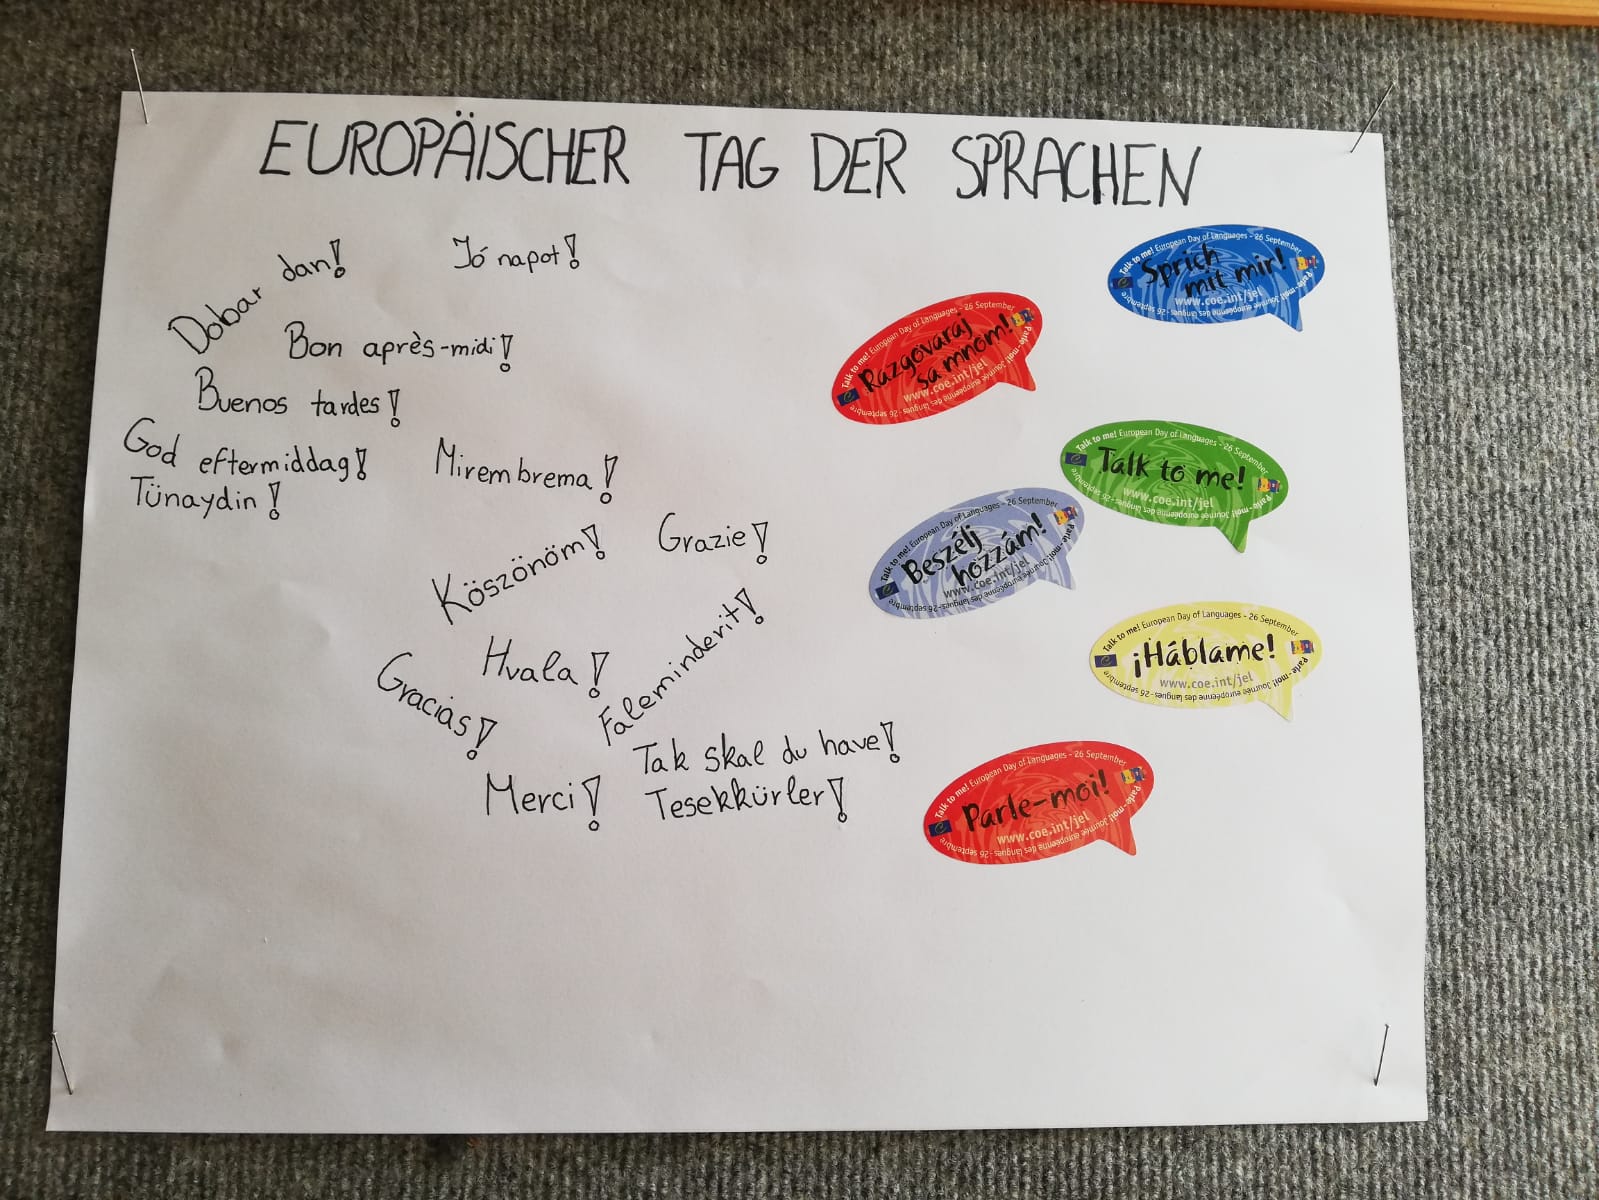 EUROPÄISCHER TAG DER SPRACHEN
Dobar dan!
Jó napot!
Bon après-midi!
Buenos tardes!
God eftermiddag!
Mirembrema!
Tünaydin!
Köszönöm!
Grazie!
Hvala!
Faleminderit!
Gracias!
Tak skal du have!
Merci!
Tesekkürler!
Talk to me! European Day of Languages - 26 September
Sprich
mit mir!
www.coe.int/jel
Parle-moi! Journée européenne des langues - 26 septembre
Talk to me! European Day of Languages - 26 September
Razgovaraj
sa mnom!
www.coe.int/jel
Parle-moi! Journée européenne des langues - 26 septembre
Talk to me! European Day of Languages - 26 September
Talk to me!
www.coe.int/jel
Parle-moi! Journée européenne des langues - 26 septembre
Talk to me! European Day of Languages - 26 September
Beszélj
hozzám!
www.coe.int/jel
Parle-moi! Journée européenne des langues - 26 septembre
Talk to me! European Day of Languages - 26 September
¡Háblame!
www.coe.int/jel
Parle-moi! Journée européenne des langues - 26 septembre
Talk to me! European Day of Languages - 26 September
Parle-moi!
www.coe.int/jel
Parle-moi! Journée européenne des langues - 26 septembre